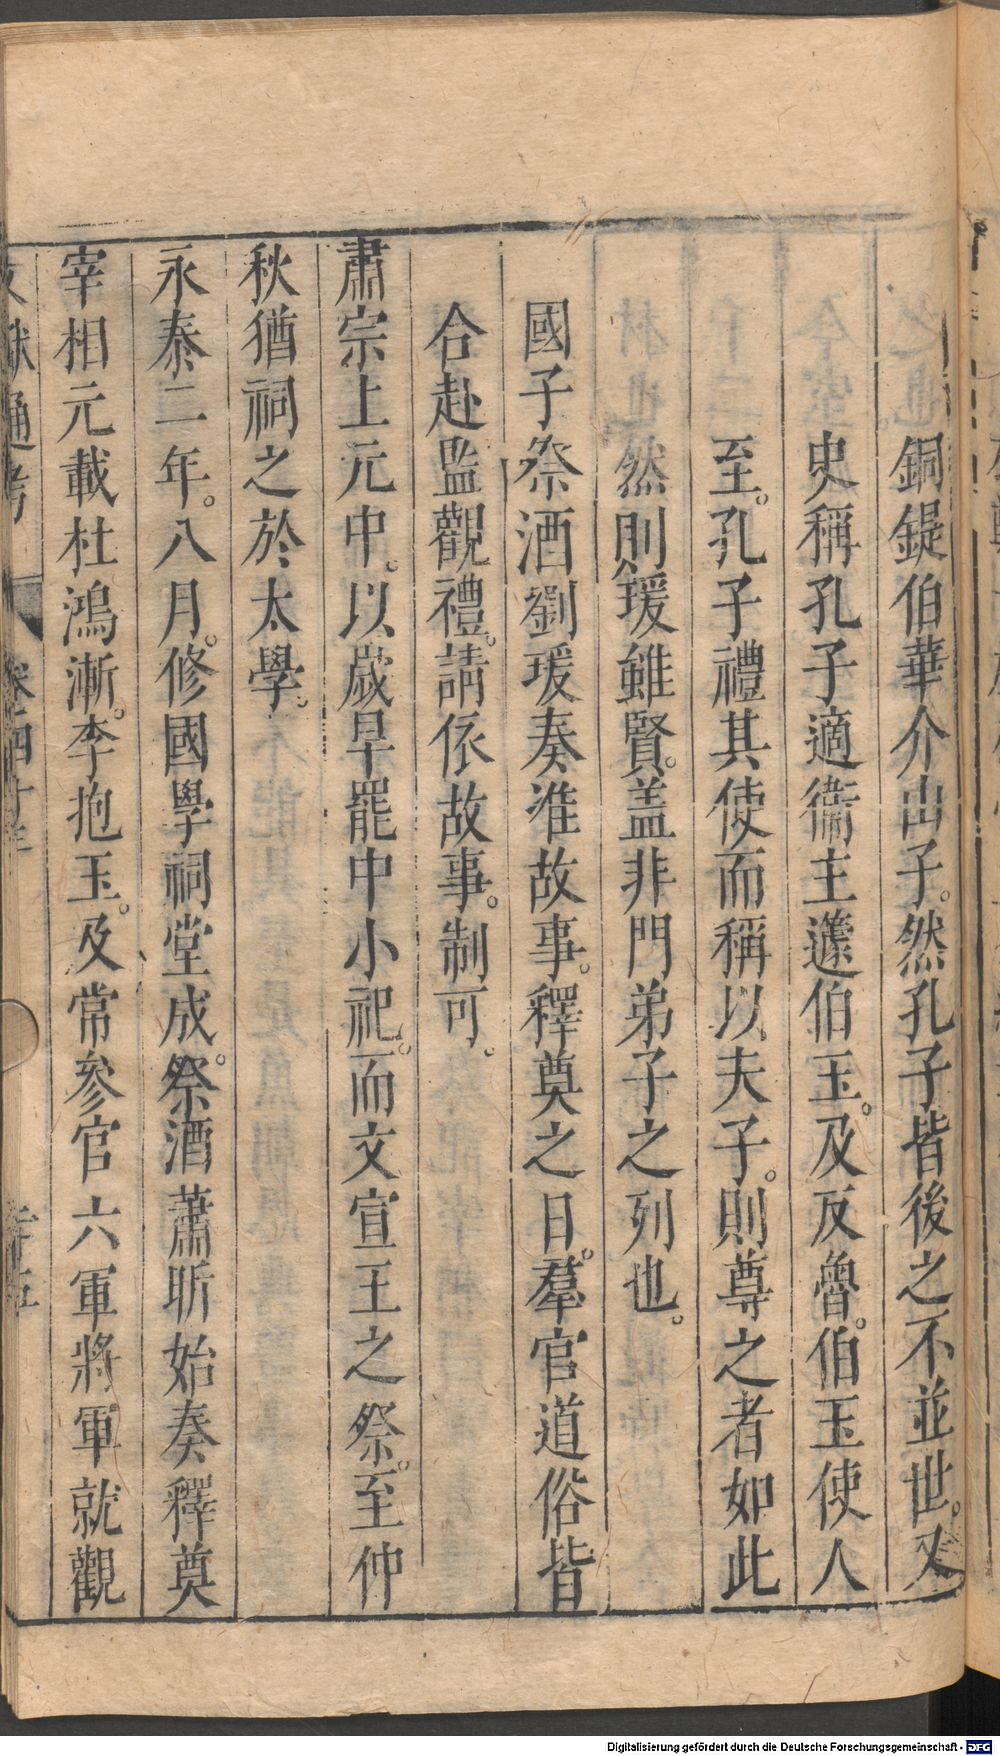 銅鍉伯華介出子。然孔子皆後之不並世。又
史稱孔子適衞主蘧伯玉。及反魯。伯玉使人
至。孔子禮其使而稱以夫子。則尊之者如此
然則瑗雖賢。盖非門弟子之列也。
國子祭酒劉瑗奏准故事。釋奠之日。羣官道俗皆
合赴監觀禮。請依故事。制可。
肅宗上元中。以歲旱罷中小祀。而文宣王之祭。至仲
秋猶祠之於太學。
永泰二年。八月。修國學祠堂成。祭酒蕭昕始奏釋奠
宰相元載杜鴻漸。李抱玉。及常參官六軍將軍就觀
獻通考 卷四十
Digitalisierung gefördert durch die Deutsche Forschungsgemeinschaft - DFG